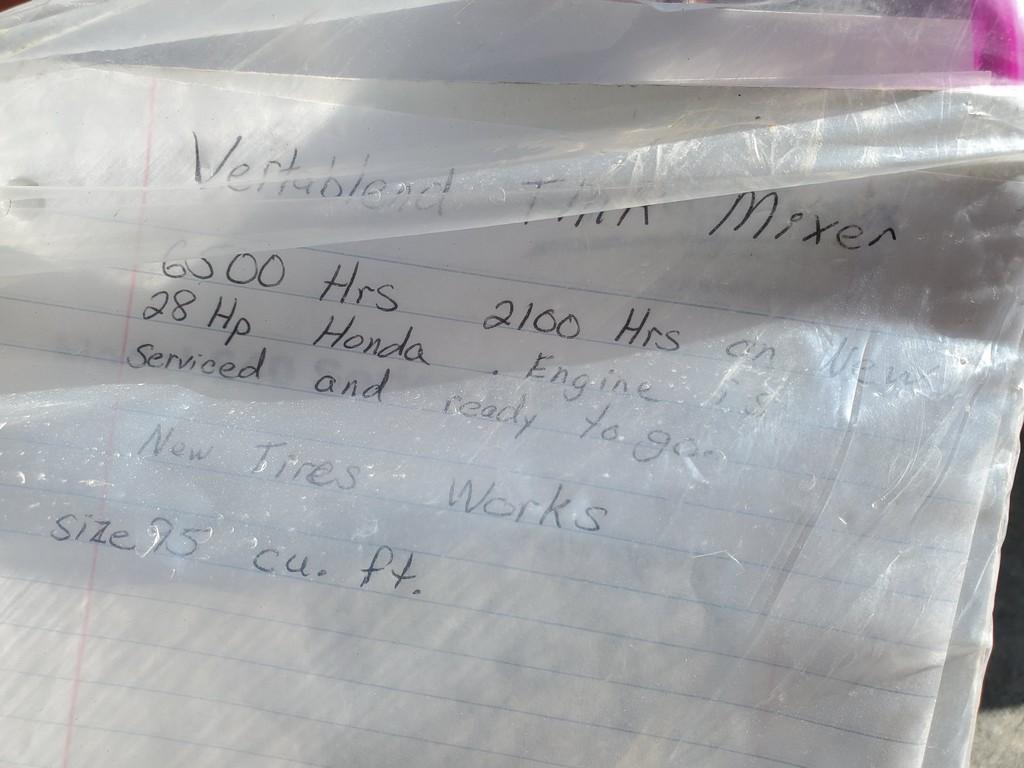 Vertublend Mixer
Hrs 2100 Hrs on New
28 Hp Honda. Engine is
Serviced and ready to go.
New Tires Works
size 95 cu. ft.